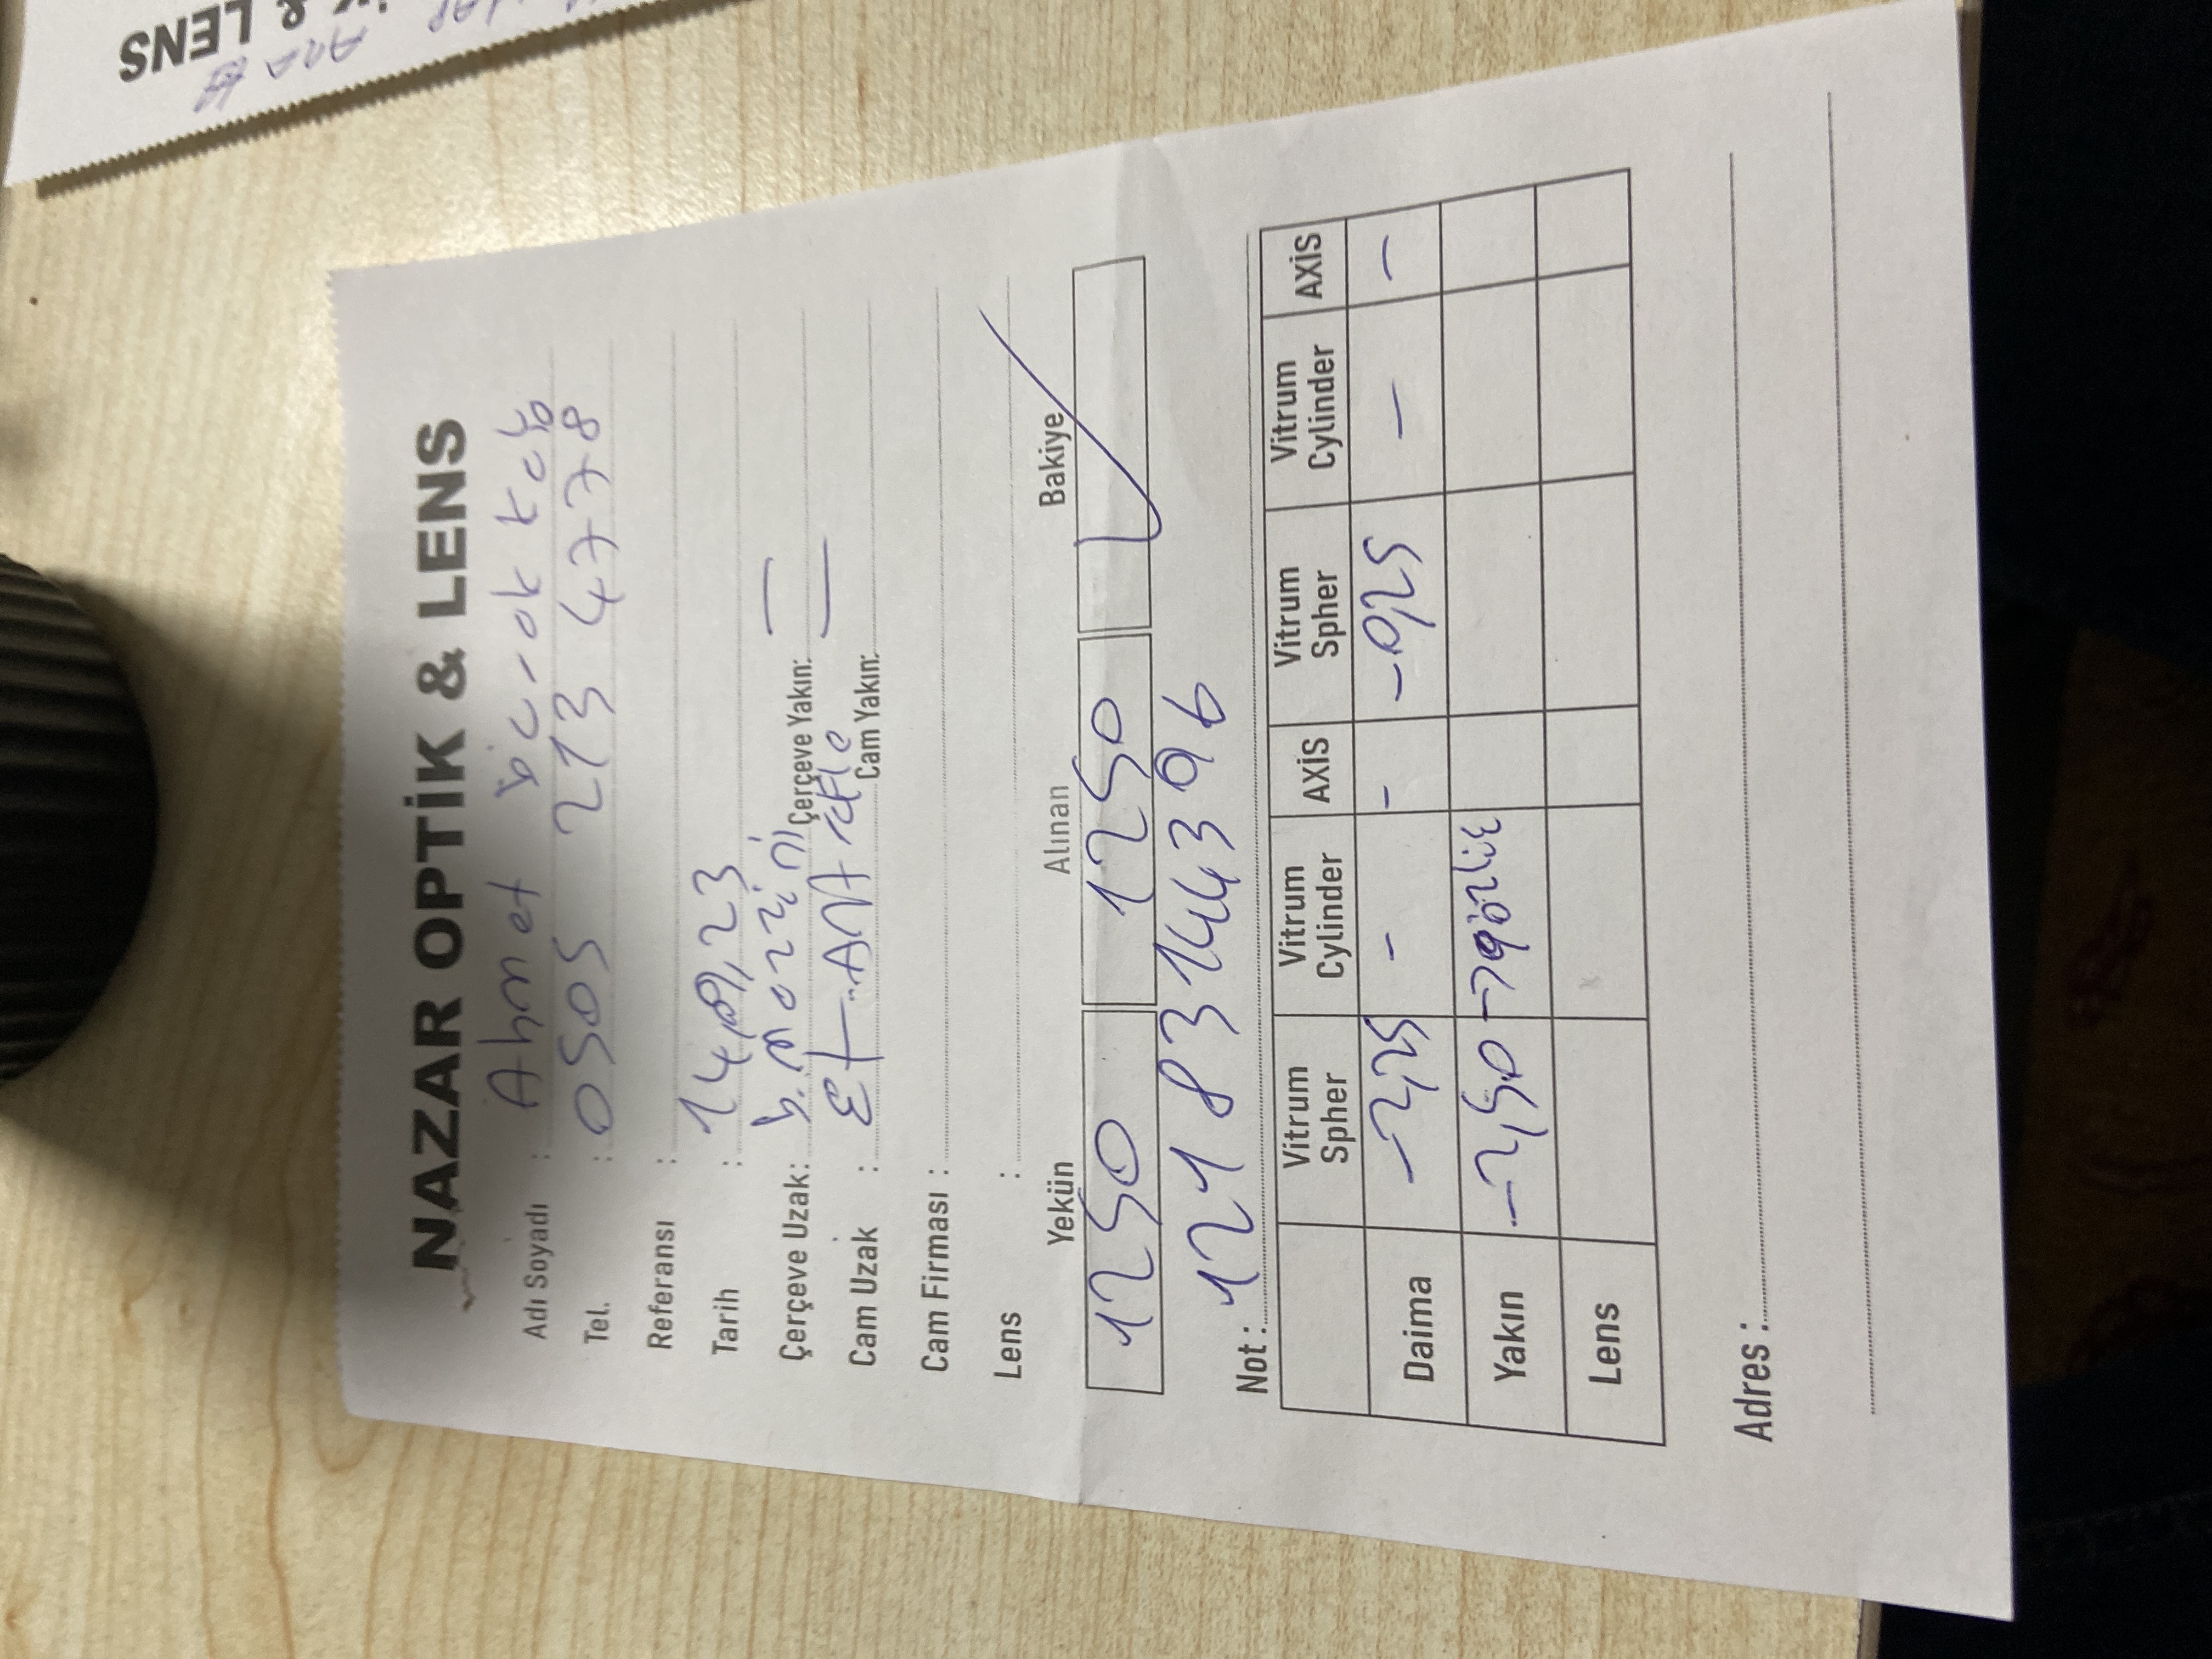 NAZAR OPTİK & LENS
Adı Soyadı : Ahmet burak
Tel. : 0505 213 4778
Referansı :
Tarih : 14,9,23
Çerçeve Uzak: b. mazzini Çerçeve Yakın:
Cam Uzak : Cam Yakın:
Cam Firması :
Lens :
Yekün Alınan Bakiye
1250 1250
Not : 12183144396
Vitrum Spher Vitrum Cylinder AXİS Vitrum Spher Vitrum Cylinder AXİS
Daima -2,25 - - -0,25 - -
Yakın -2,50 → gözlük
Lens
Adres :
& LENS